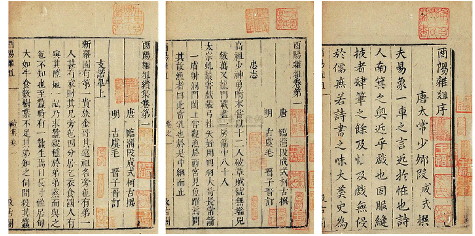 酉陽雜俎序
唐太常少卿段成式撰
夫易象一車之言近於怪也詩
人南箕之興近乎戲也固服縫
掖者肆筆之餘及怪及戲無侵
於儒無若詩書之味大羹史為
酉陽雜俎卷第一
唐 臨淄段成式柯古撰
明 古虞毛 晉子晉訂
忠志
高祖少神勇隋末嘗以十二人破草賊號無端兒
數萬又龍門戰盡一房箭中八十人
太宗虬鬚嘗戲張弓挂矢好用四羽大笴長常箭
一膚射洞門闔上嘗觀漁於西宮見魚躍焉問
其故漁者曰此當乳也於是中網而止
酉陽雜俎
酉陽雜俎續集卷第一
唐 臨淄段成式柯古撰
明 古虞毛 晉子晉訂
支諾皋上
新羅國有第一貴族金哥其遠祖名旁㐌有弟一
人甚有家財其兄旁㐌因分居乞衣食國人有
與其隙地一畝乃求蠶穀種於弟弟蒸而與之
㐌不知也至蠶時有一蠶生焉日長寸餘居旬
大如牛食數樹葉不足其弟知之伺間殺其蠶
酉陽雜俎